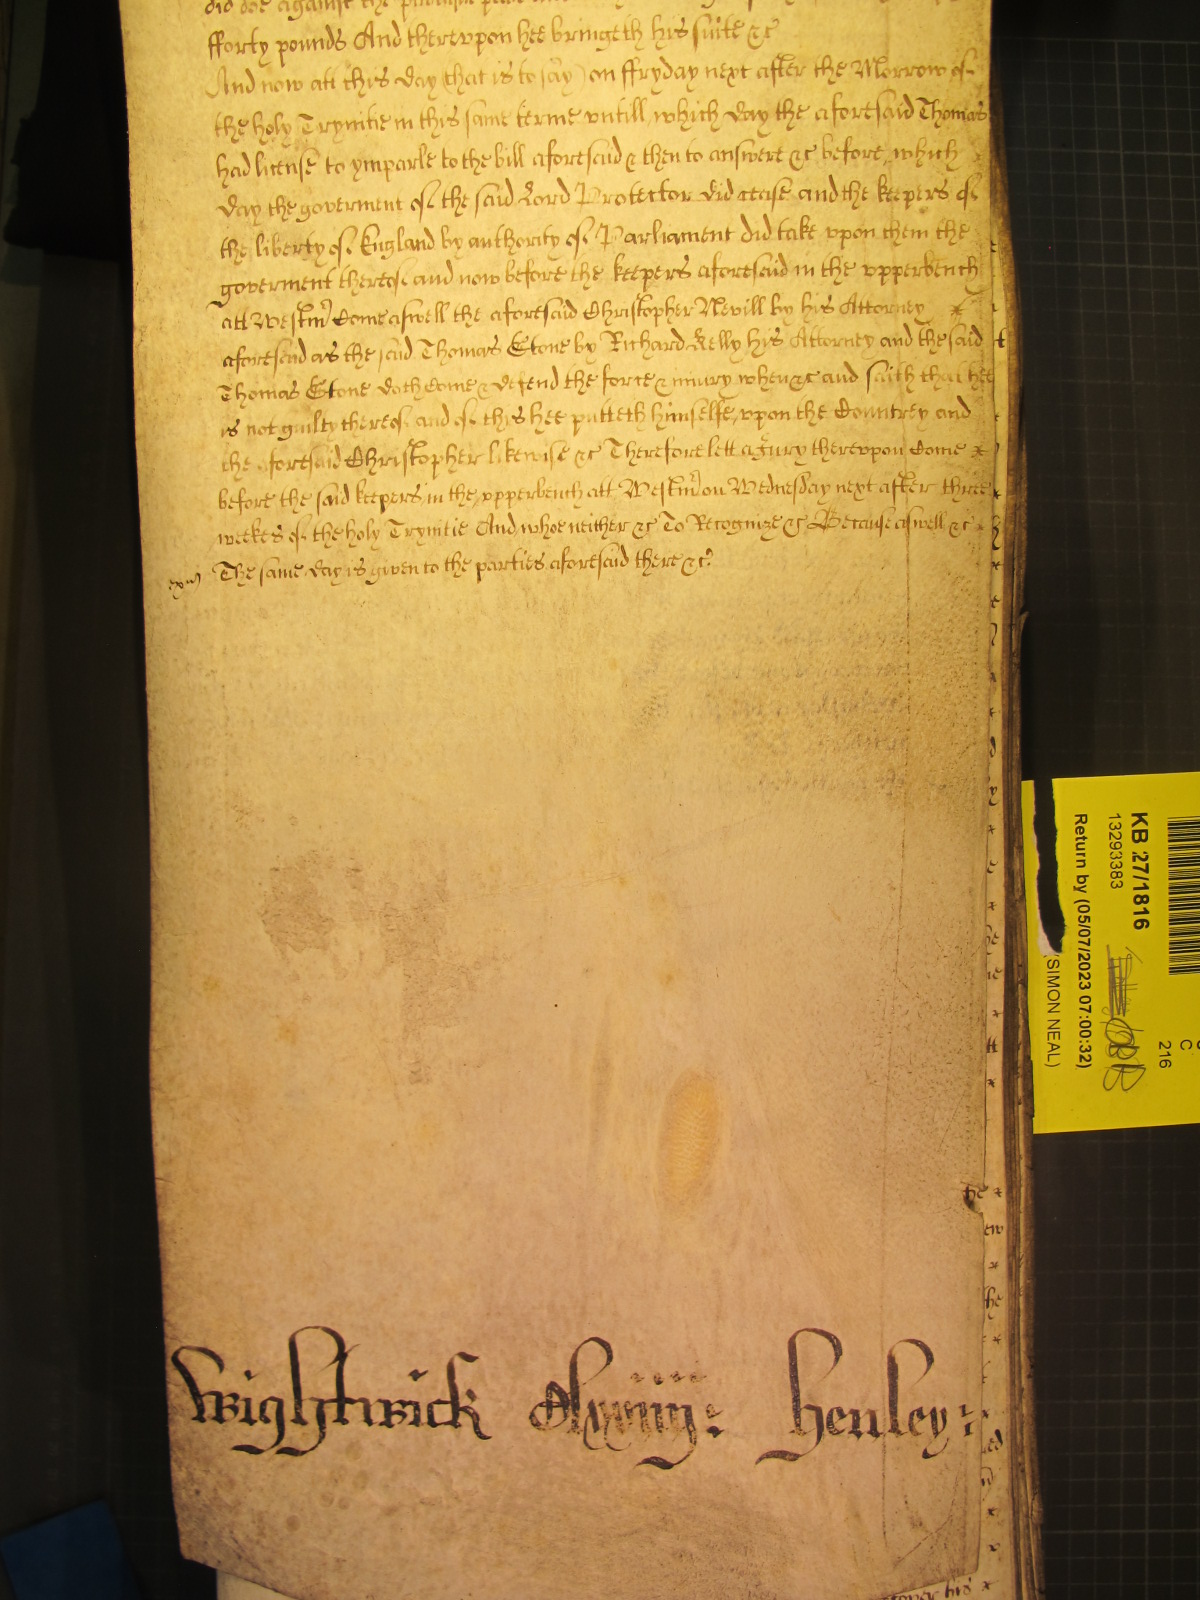 did doe against the
fforty pounds And therevpon hee bringeth his suite &c
And now att this day (that is to say) on ffryday next after the Morrow of
the holy Trynitie in this same terme vntill which day the aforesaid Thomas
had license to ymparle to the bill aforesaid & then to answere &c before which
day the goverment of the said Lord Protector did cease and the keepers of
the liberty of England by authority of Parliament did take vpon them the
goverment thereof and now before the keepers aforesaid in the vpperbench
att Westm' Come aswell the aforesaid Christopher Nevill by his Attorney
aforesaid as the said Thomas Stone by Richard Kelly his Attorney and the said
Thomas Stone doth Come & defend the force & iniury when &c and saith that hee
is not guilty thereof and of this hee putteth himselfe vpon the Countrey and
the aforesaid Christopher likewise &c Therefore lett a Jury therevpon Come
before the said keepers in the vpperbench att Westm' on Wednesday next after three
weekes of the holy Trynitie And whoe neither &c To Recognize &c Because aswell &c
The same day is given to the parties aforesaid there &c
Wightwick Henley
KB 27/1816
13293383
Return by (05/07/2023 07:00:32)
(SIMON NEAL)
C
216